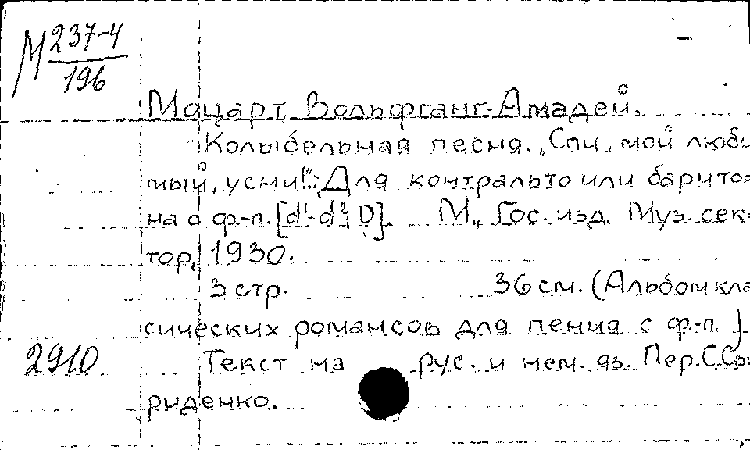 М 237-4
196
Моцарт, Вольфганг-Амадей.
Колыбельная песня. "Спи, мой люби-
мый, усни". Для контральто или барито-
на с ф-п. [d¹-d² D]. М., Гос. изд. Муз. сек-
тор, 1930.
3 стр. 36 см. (Альбом клас-
сических романсов для пения с ф-п.).
2910. Текст на рус. и нем. яз. Пер. С. Сви-
риденко.